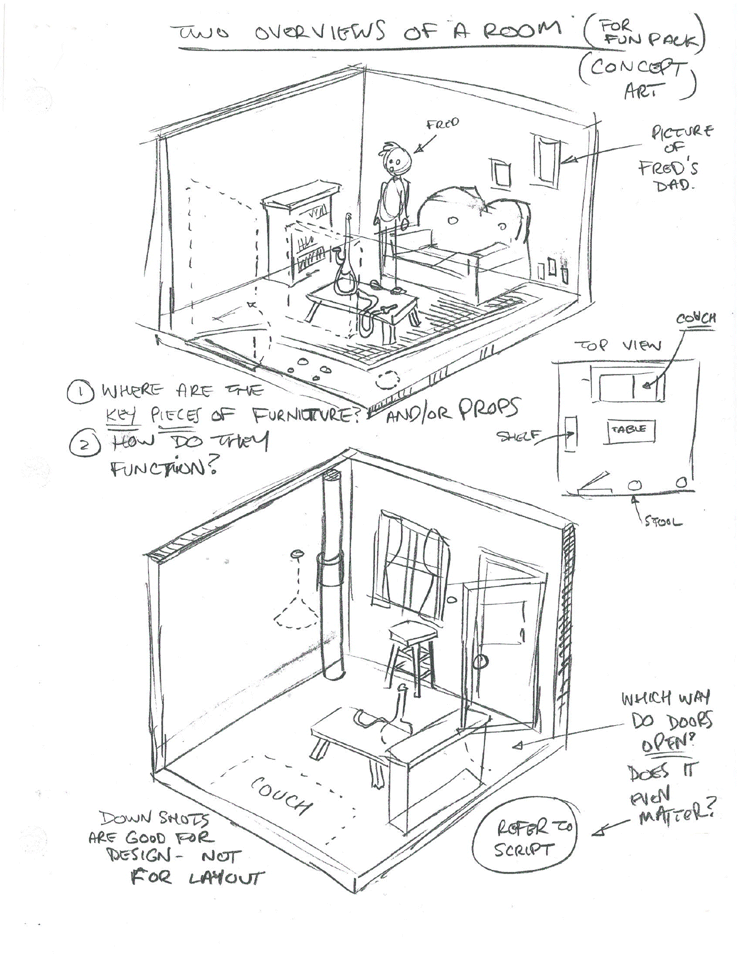 TWO OVERVIEWS OF A ROOM (FOR
FUN PACK)
(CONCEPT
ART)
FRED
PICTURE
OF
FRED'S
DAD.
COUCH
TOP VIEW
SHELF
TABLE
STOOL
① WHERE ARE THE
KEY PIECES OF FURNITURE? AND/OR PROPS
② HOW DO THEY
FUNCTION?
WHICH WAY
DO DOORS
OPEN?
DOES IT
EVEN
MATTER?
REFER TO
SCRIPT
COUCH
DOWN SHOTS
ARE GOOD FOR
DESIGN - NOT
FOR LAYOUT